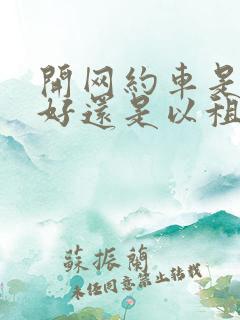 開网約車是
好還是以租
蘇振蘭
未经同意禁止转载